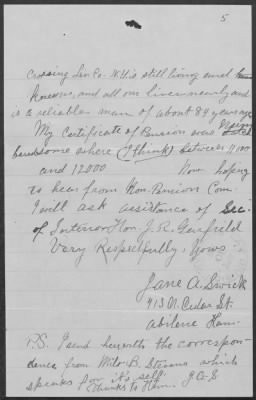 5
Crossing Liv. Co. N.Y. is still living and
knows, and all our lives nearly and
is a reliable man of about 84 years age
My Certificate of Pension was
somewhere (I think) between 11000
and 12000 Now hoping
to hear from Hon. Pension Com.
I will ask assistance of Sec.
of Interior Hon. J. R. Garfield
Very Respectfully, Yours
Jane A. Swick
913 N. Cedar St.
Abilene Kan.
P.S. I send herewith the correspon-
dence from Milo B. Stevens which
speaks for it's self
thanks to Him. J.A.S